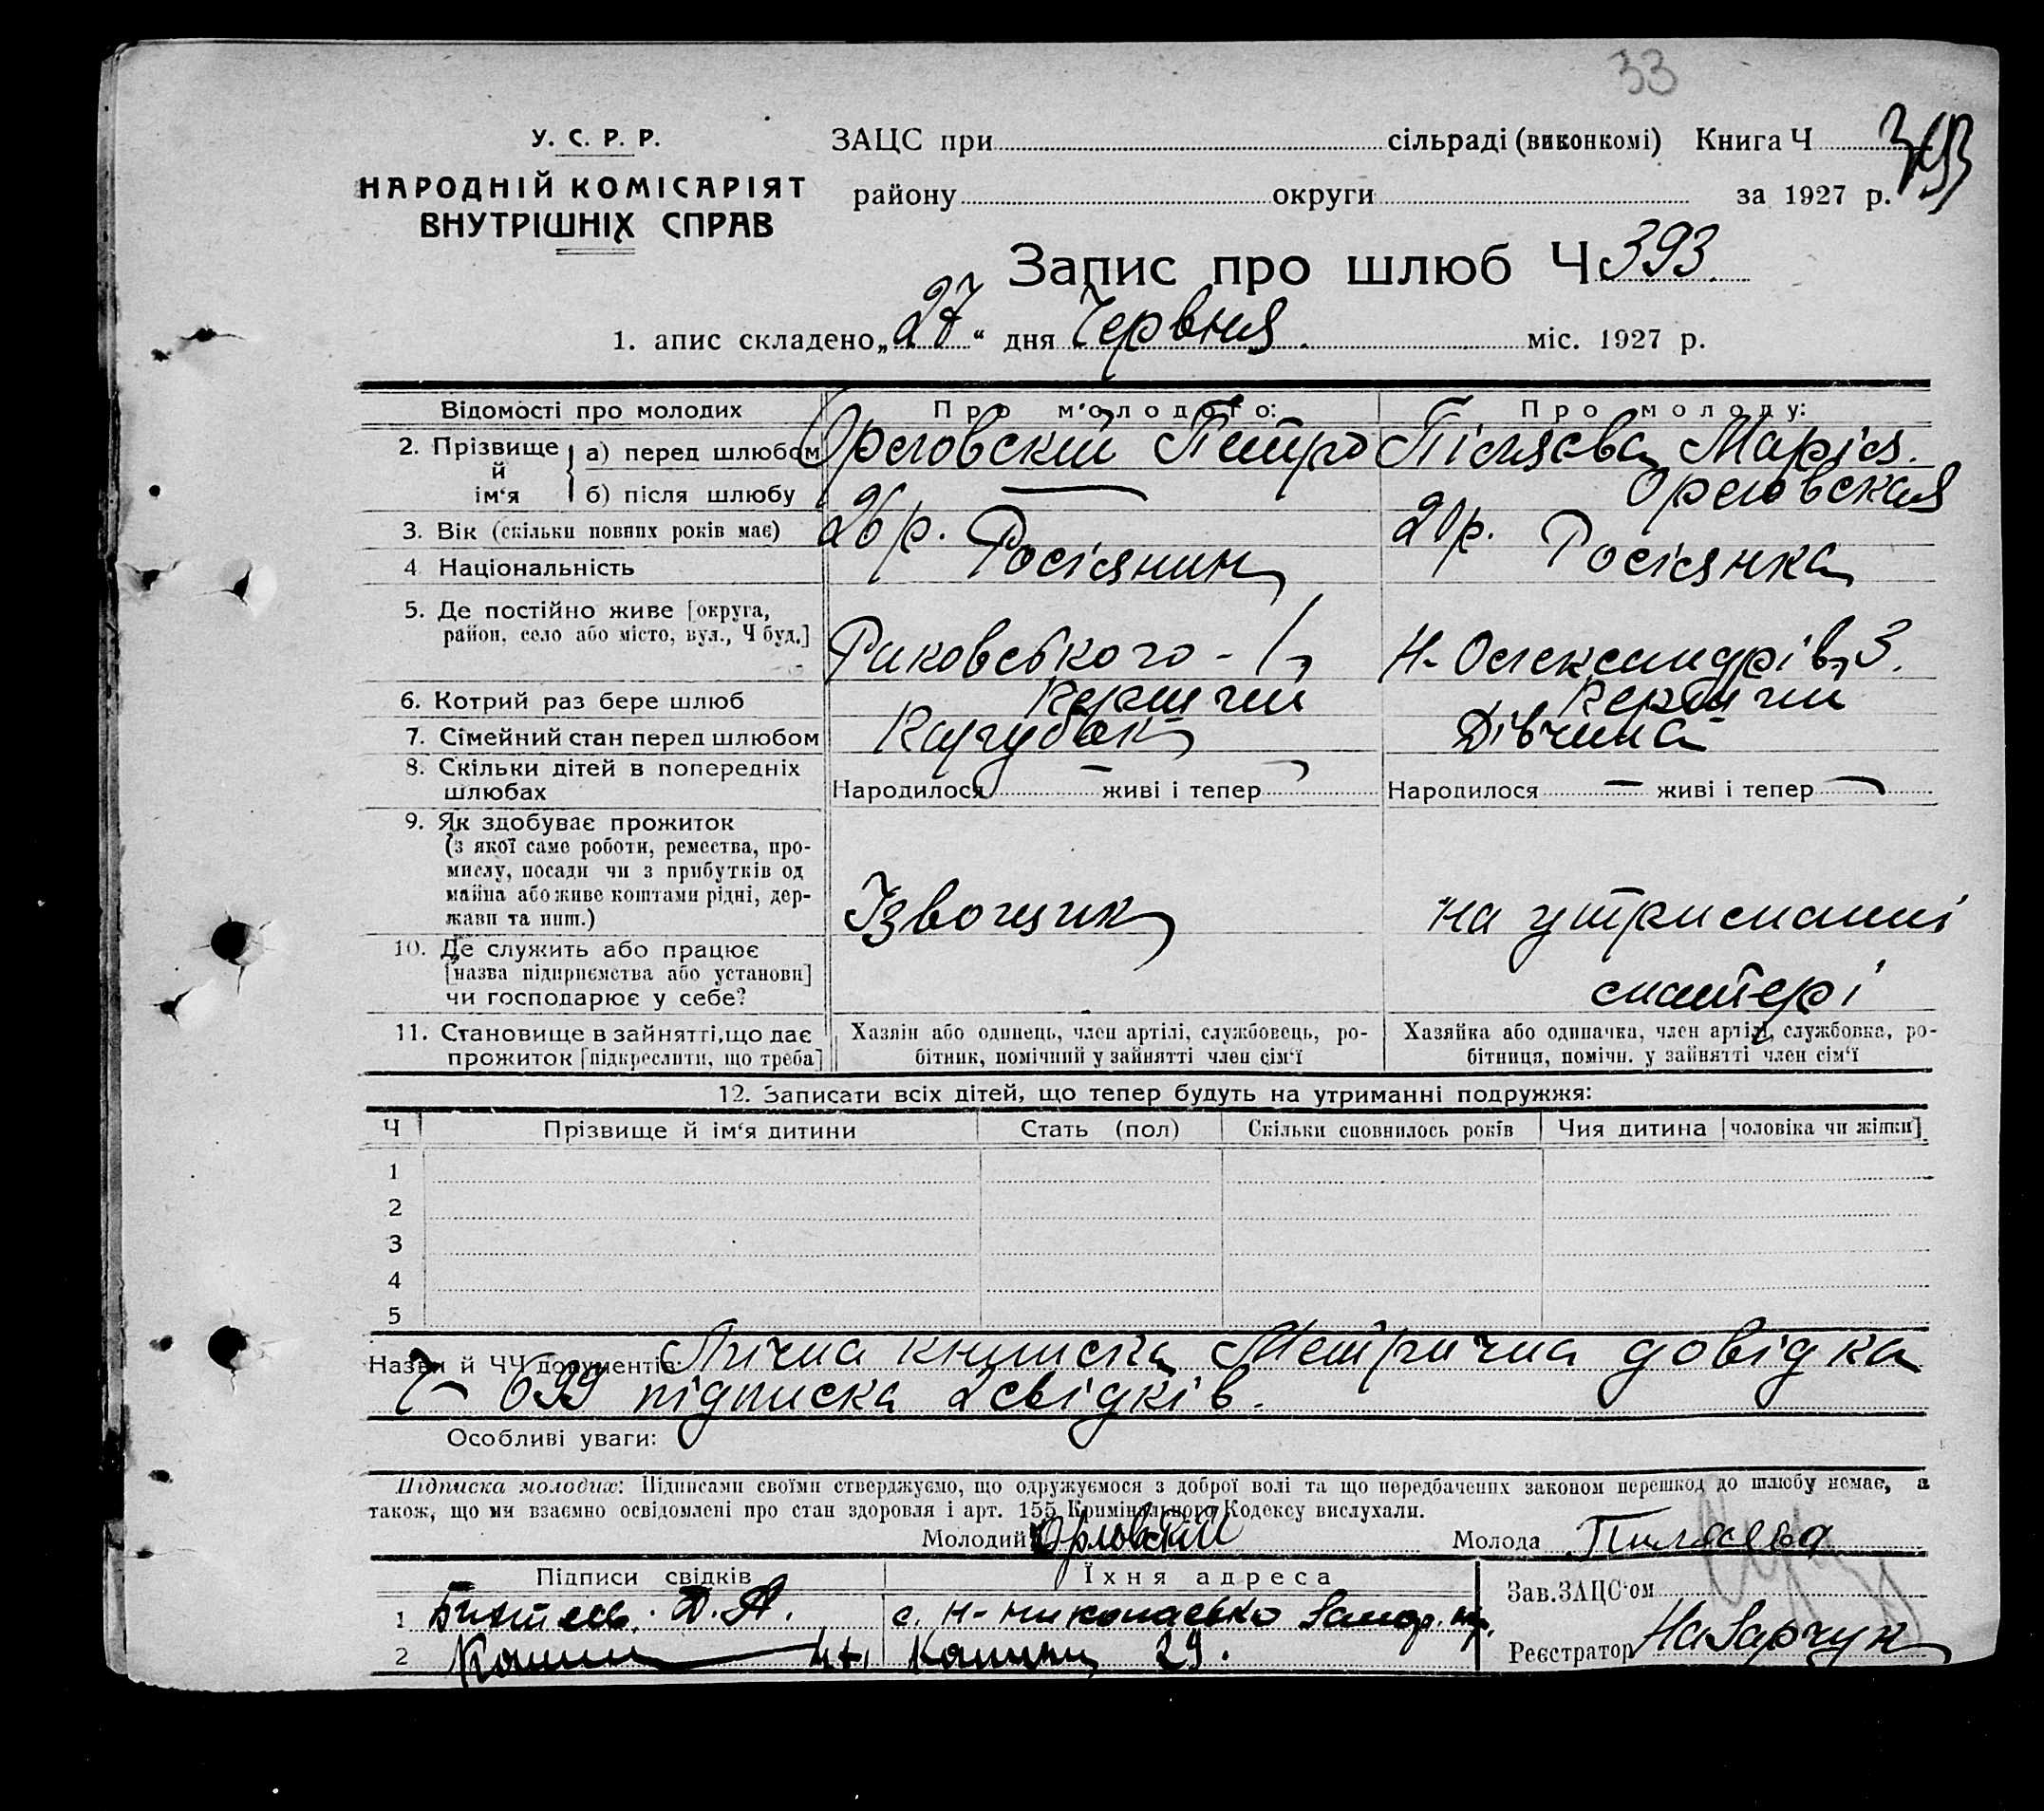 33
У. С. Р. Р.
НАРОДНІЙ КОМІСАРІЯТ
ВНУТРІШНІХ СПРАВ
ЗАЦС при сільраді (виконкомі) Книга Ч 393
району округи за 1927 р.
Запис про шлюб Ч 393
1. апис складено „27“ дня Червня міс. 1927 р.
Відомості про молодих Про молодого: Про молоду:
2. Прізвище й ім‘я а) перед шлюбом Орловский Петро Піляєва Марія.
б) після шлюбу — Орловская
3. Вік (скільки повних років має) 26 р. 20 р.
4 Національність Росіянин Росіянка
5. Де постійно живе [округа,
район, село або місто, вул., Ч буд.] Раковського - 1 Н-Олександрів, 3.
6. Котрий раз бере шлюб Перший Перший
7. Сімейний стан перед шлюбом Парубок Дівчина
8. Скільки дітей в попередніх
шлюбах Народилося — живі і тепер — Народилося — живі і тепер —
9. Як здобуває прожиток
(з якої саме роботи, ремества, про-
мислу, посади чи з прибутків од
майна або живе коштами рідні, дер-
жави та инш.) Ізвощик на утриманні
10. Де служить або працює
[назва підприємства або установи]
чи господарює у себе? матері
11. Становище в зайнятті, що дає
прожиток [підкреслити, що треба]
Хазяін або одинець, член артілі, службовець, ро-
бітник, помічний у зайнятті член сім‘ї
Хазяйка або одиначка, член артілі, службовка, ро-
бітниця, помічн. у зайнятті член сім‘ї
12. Записати всіх дітей, що тепер будуть на утриманні подружжя:
Ч Прізвище й ім‘я дитини Стать (пол) Скільки сповнилось років Чия дитина [чоловіка чи жінки]
1
2
3
4
5
Назви й ЧЧ документів: Лічна книжка Метрична довідка
699 підписка 2 свідків.
Особливі уваги:
Підписка молодих: Підписами своїми стверджуємо, що одружуємося з доброї волі та що передбачених законом перешкод до шлюбу немає, а
також, що ми взаємно освідомлені про стан здоровля і арт. 155 Кримінального Кодексу вислухали.
Молодий Орловский Молода Пиляева
Підписи свідків Їхня адреса
Зав. ЗАЦС‘ом
1 Д. А. с. Н-
2 29.
Реєстратор Назарчук